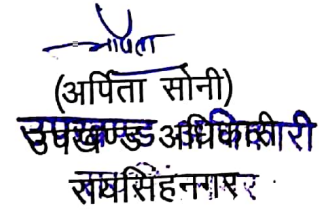 अर्पिता
(अर्पिता सोनी)
उपखण्ड अधिकारी
रायसिंहनगर